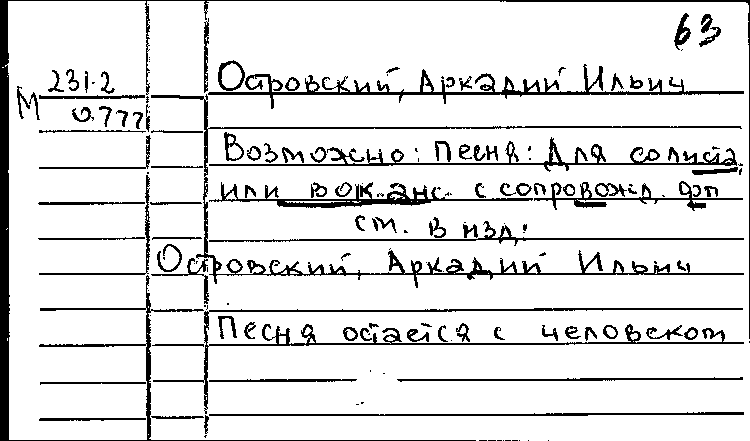 63
231.2
М 0.777
Островский, Аркадий Ильич
Возможно: Песня: Для солиста
или вок. анс. с сопровожд. фп
см. в изд:
Островский, Аркадий Ильич
Песня остается с человеком